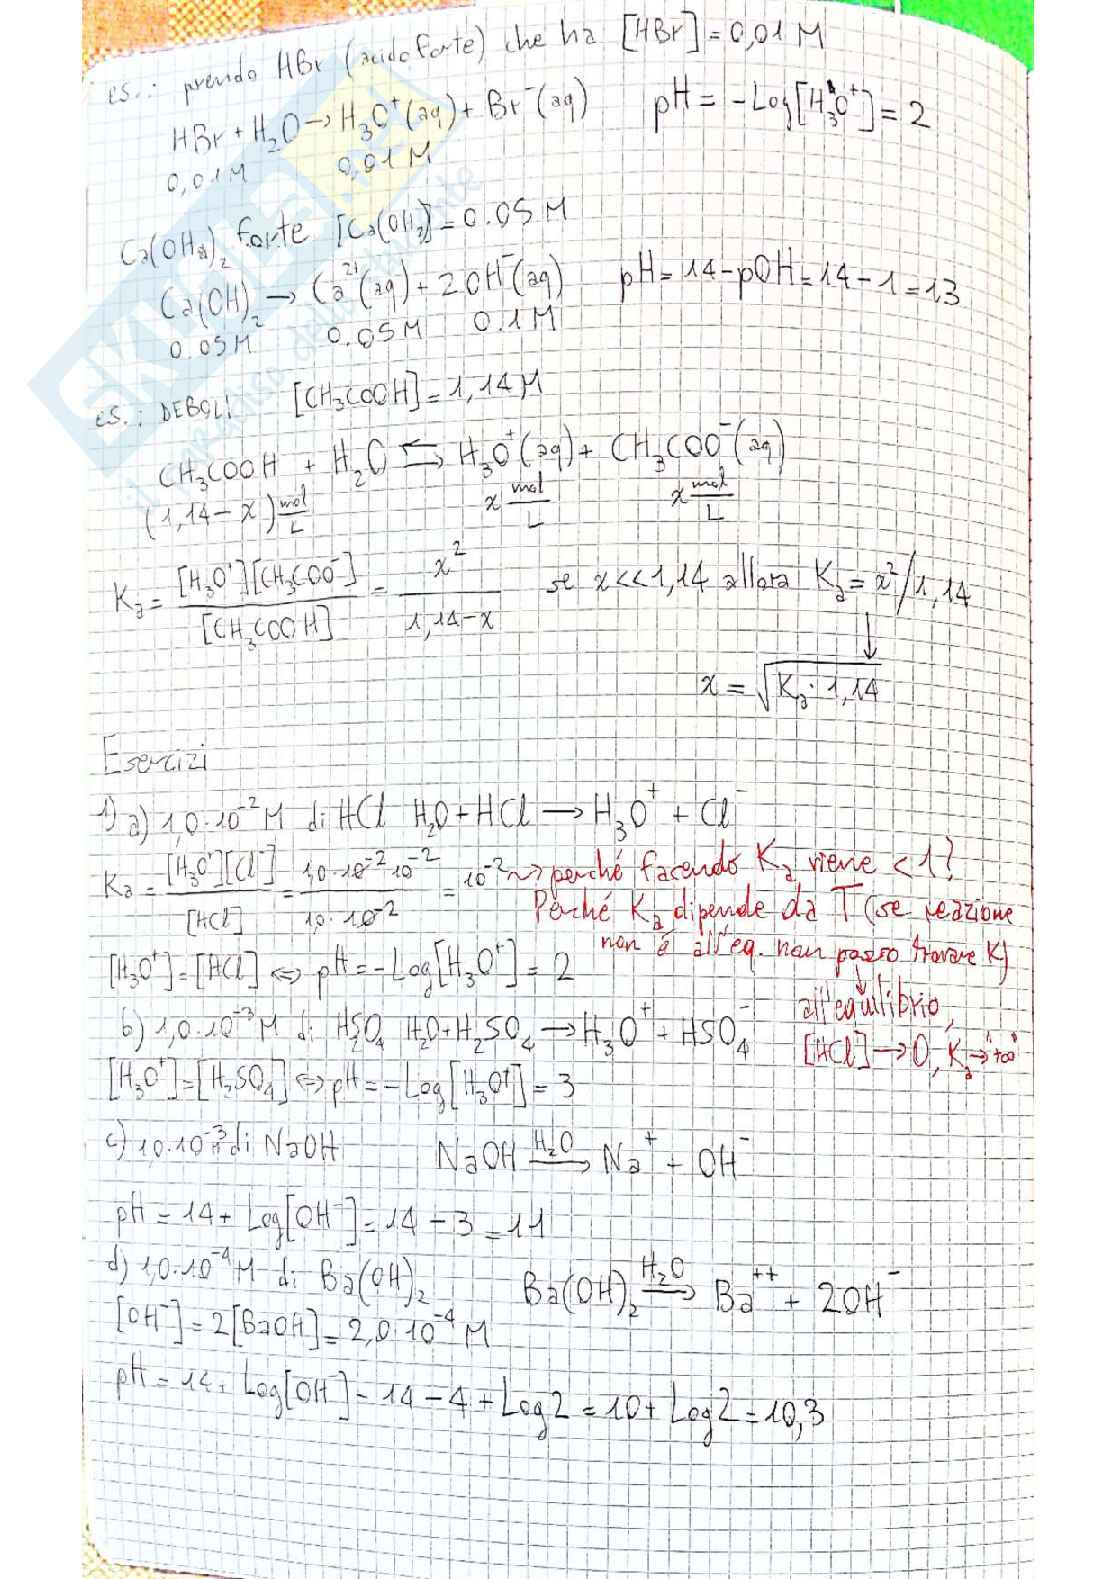 es.: prendo HBr (acido forte) che ha [HBr] = 0,01 M
HBr + H₂O → H₃O⁺(aq) + Br⁻(aq) pH = -Log[H₃O⁺] = 2
0,01 M 0,01 M
Ca(OH)₂ forte [Ca(OH)₂] = 0.05 M
Ca(OH)₂ → Ca²⁺(aq) + 2OH⁻(aq) pH = 14 - pOH = 14 - 1 = 13
0.05M 0.05M 0.1M
es.: DEBOLI [CH₃COOH] = 1,14 M
CH₃COOH + H₂O ⇆ H₃O⁺(aq) + CH₃COO⁻(aq)
(1,14-x) mol/L x mol/L x mol/L
Ka = [H₃O⁺][CH₃COO⁻]/[CH₃COOH] = x²/1,14-x se x<<1,14 allora Ka = x²/1,14
↓
x = √Ka·1,14
Esercizi
1) a) 1,0·10⁻² M di HCl H₂O + HCl → H₃O⁺ + Cl⁻
Ka = [H₃O⁺][Cl⁻]/[HCl] = 1,0·10⁻²·10⁻²/1,0·10⁻² = 10⁻² ⇝ perché facendo Ka viene <1?
Perché Ka dipende da T (se reazione
non è all'eq. non posso trovare K)
[H₃O⁺] = [HCl] ⇔ pH = -Log[H₃O⁺] = 2
↓
all'equilibrio,
[HCl] → 0, Ka → "+∞"
b) 1,0·10⁻³ M di H₂SO₄ H₂O + H₂SO₄ → H₃O⁺ + HSO₄⁻
[H₃O⁺] = [H₂SO₄] ⇔ pH = -Log[H₃O⁺] = 3
c) 1,0·10⁻³ di NaOH NaOH →H₂O Na⁺ + OH⁻
pH = 14 + Log[OH⁻] = 14 - 3 = 11
d) 1,0·10⁻⁴ M di Ba(OH)₂ Ba(OH)₂ →H₂O Ba⁺⁺ + 2OH⁻
[OH⁻] = 2[BaOH] = 2,0·10⁻⁴ M
pH = 14 + Log[OH⁻] = 14 - 4 + Log2 = 10 + Log2 = 10,3